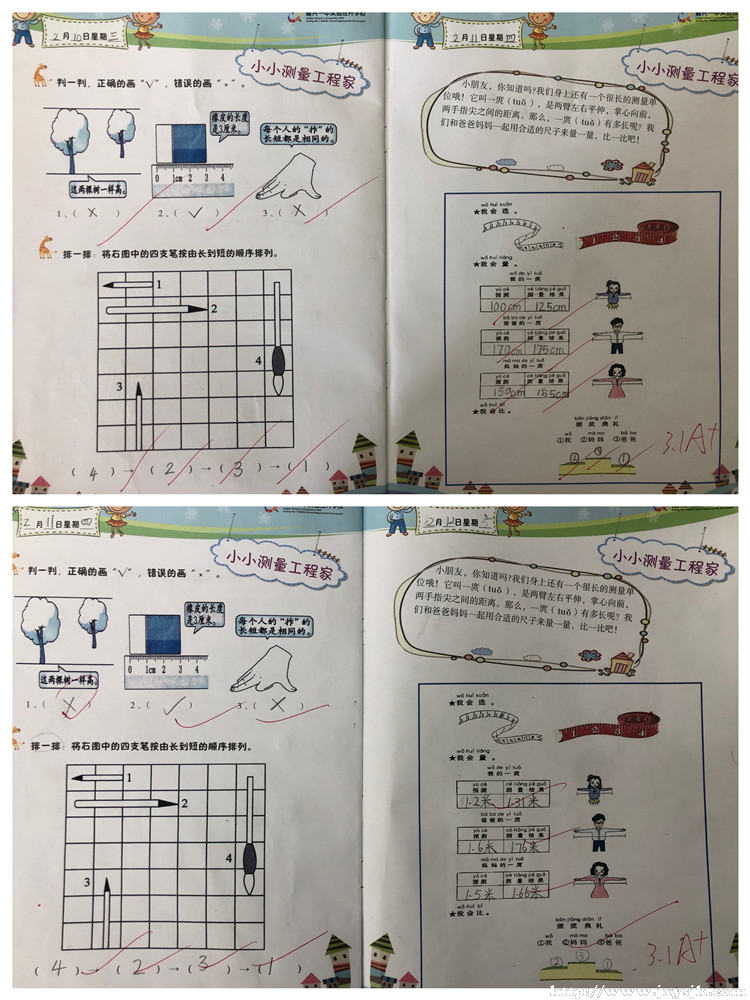 2月10日星期三
小小测量工程家
判一判，正确的画“√”，错误的画“×”。
橡皮的长度
是3厘米。
每个人的“拃”的
长短都是相同的。
0 1cm 2 3 4
这两棵树一样高。
1、( × ) 2、( √ ) 3、( × )
排一排：将右图中的四支笔按由长到短的顺序排列。
1
2
4
3
( 4 )→( 2 )→( 3 )→( 1 )
2月11日星期四
小小测量工程家
小朋友，你知道吗?我们身上还有一个很长的测量单
位哦！它叫一庹（tuǒ），是两臂左右平伸，掌心向前，
两手指尖之间的距离。那么，一庹（tuǒ）有多长呢？我
们和爸爸妈妈一起用合适的尺子来量一量，比一比吧！
wǒ huì xuǎn
★我会选。
1 2 3 4
wǒ huì liáng
★我会量。
wǒ de yì tuǒ
我的一庹
yù cè cè liáng jié guǒ
预测 测量结果
100cm 125cm
bà ba de yì tuǒ
爸爸的一庹
yù cè cè liáng jié guǒ
预测 测量结果
170cm 175cm
mā ma de yì tuǒ
妈妈的一庹
yù cè cè liáng jié guǒ
预测 测量结果
150cm 155cm
wǒ huì bǐ
★我会比。
bān jiǎng diǎn lǐ
颁奖典礼
wǒ mā ma bà ba
①我 ②妈妈 ③爸爸
② ③ ①
3.1A+
2月11日星期四
小小测量工程家
判一判，正确的画“√”，错误的画“×”。
橡皮的长度
是3厘米。
每个人的“拃”的
长短都是相同的。
0 1cm 2 3 4
这两棵树一样高。
1、( × ) 2、( √ ) 3、( × )
排一排：将右图中的四支笔按由长到短的顺序排列。
1
2
4
3
( 4 )→( 2 )→( 3 )→( 1 )
2月12日星期五
小小测量工程家
小朋友，你知道吗?我们身上还有一个很长的测量单
位哦！它叫一庹（tuǒ），是两臂左右平伸，掌心向前，
两手指尖之间的距离。那么，一庹（tuǒ）有多长呢？我
们和爸爸妈妈一起用合适的尺子来量一量，比一比吧！
wǒ huì xuǎn
★我会选。
1 2 3 4
wǒ huì liáng
★我会量。
wǒ de yì tuǒ
我的一庹
yù cè cè liáng jié guǒ
预测 测量结果
1.2米 1.31米
bà ba de yì tuǒ
爸爸的一庹
yù cè cè liáng jié guǒ
预测 测量结果
1.6米 176米
mā ma de yì tuǒ
妈妈的一庹
yù cè cè liáng jié guǒ
预测 测量结果
1.5米 1.66米
wǒ huì bǐ
★我会比。
bān jiǎng diǎn lǐ
颁奖典礼
wǒ mā ma bà ba
①我 ②妈妈 ③爸爸
② ③ ①
3.1A+
http://www.jxysjk.com